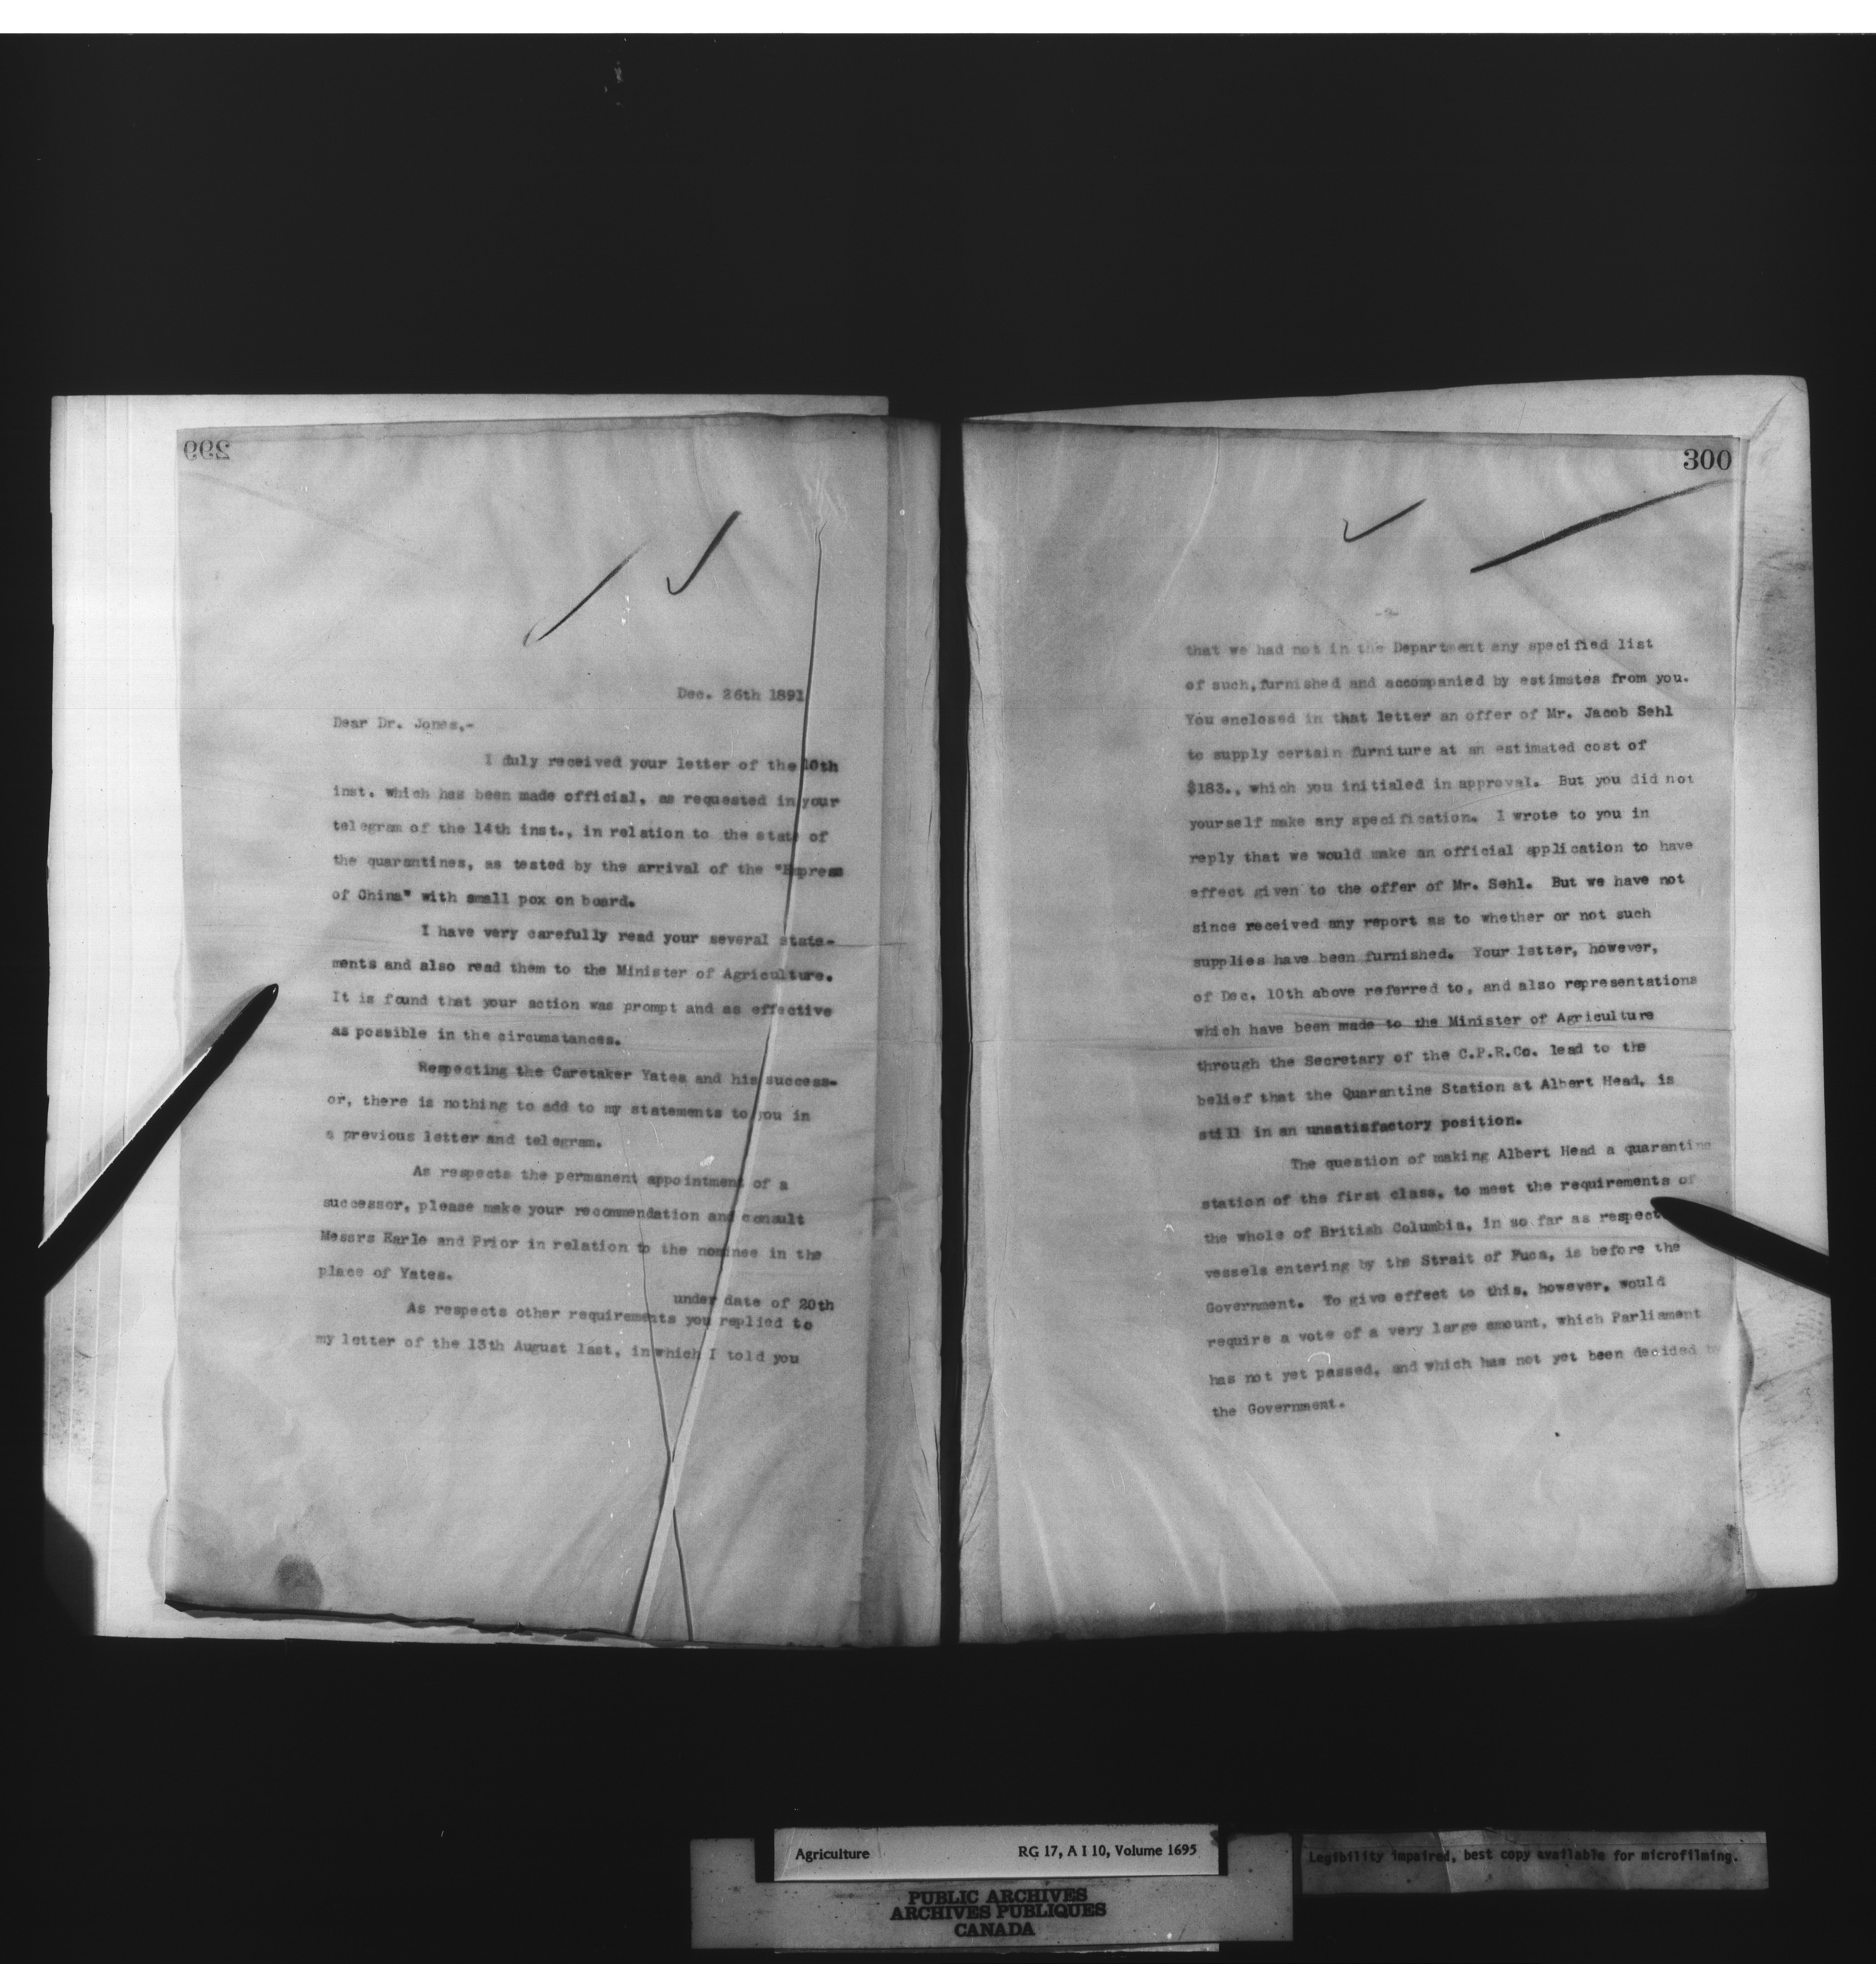 299
Dec. 26th 1891
Dear Dr. Jones,-
I duly received your letter of the 10th
inst. which has been made official, as requested in your
telegram of the 14th inst., in relation to the state of
the quarantines, as tested by the arrival of the "Empress
of China" with small pox on board.
I have very carefully read your several state-
ments and also read them to the Minister of Agriculture.
It is found that your action was prompt and as effective
as possible in the circumstances.
Respecting the Caretaker Yates and his success-
or, there is nothing to add to my statements to you in
a previous letter and telegram.
As respects the permanent appointment of a
successor, please make your recommendation and consult
Messrs Earle and Prior in relation to the nominee in the
place of Yates.
under date of 20th
As respects other requirements you replied to
my letter of the 13th August last, in which I told you
300
-2-
that we had not in the Department any specified list
of such, furnished and accompanied by estimates from you.
You enclosed in that letter an offer of Mr. Jacob Sehl
to supply certain furniture at an estimated cost of
$183., which you initialed in approval. But you did not
yourself make any specification. I wrote to you in
reply that we would make an official application to have
effect given to the offer of Mr. Sehl. But we have not
since received any report as to whether or not such
supplies have been furnished. Your letter, however,
of Dec. 10th above referred to, and also representations
which have been made to the Minister of Agriculture
through the Secretary of the C.P.R.Co. lead to the
belief that the Quarantine Station at Albert Head, is
still in an unsatisfactory position.
The question of making Albert Head a quarantine
station of the first class, to meet the requirements of
the whole of British Columbia, in so far as respect
vessels entering by the Strait of Fuca, is before the
Government. To give effect to this, however, would
require a vote of a very large amount, which Parliament
has not yet passed, and which has not yet been decided by
the Government.
Agriculture RG 17, A I 10, Volume 1695
Legibility impaired, best copy available for microfilming.
PUBLIC ARCHIVES
ARCHIVES PUBLIQUES
CANADA